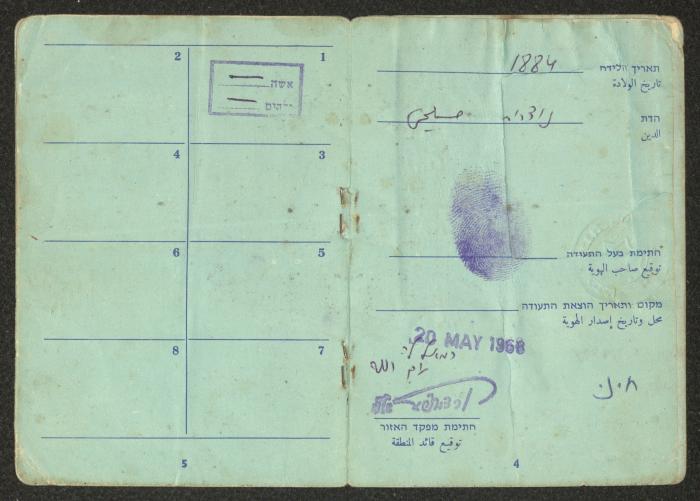 תאריך הלידה 1884
تاريخ الولادة
הדת נוצרית مسيحي
الدين
חתימת בעל התעודה
توقيع صاحب الهوية
מקום ותאריך הוצאת התעודה
محل وتاريخ إصدار الهوية
20 MAY 1968
רמאללה
رام الله
חתימת מפקד האזור
توقيع قائد المنطقة
4
1
אשה
ילדים
2
3
4
5
6
7
8
5